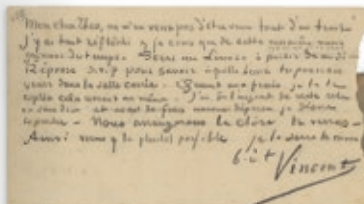 Mon cher Theo, ne m'en veux pas d'être venu tout d'un trait
J'y ai tant réfléchi & je crois que de cette manière nous
gagnons du temps. Serai au Louvre à partir de midi
Réponse s.v.p. pour savoir à quelle heure tu pourrais
venir dans la salle carrée. Quant aux frais je te le
répète cela revient au même. J'ai de l'argent de reste cela
va sans dire et avant de faire aucune dépense je désire
te parler. Nous arrangerons la chose tu verras.
Ainsi viens y le plutôt possible je te serre la main
b. à t. Vincent